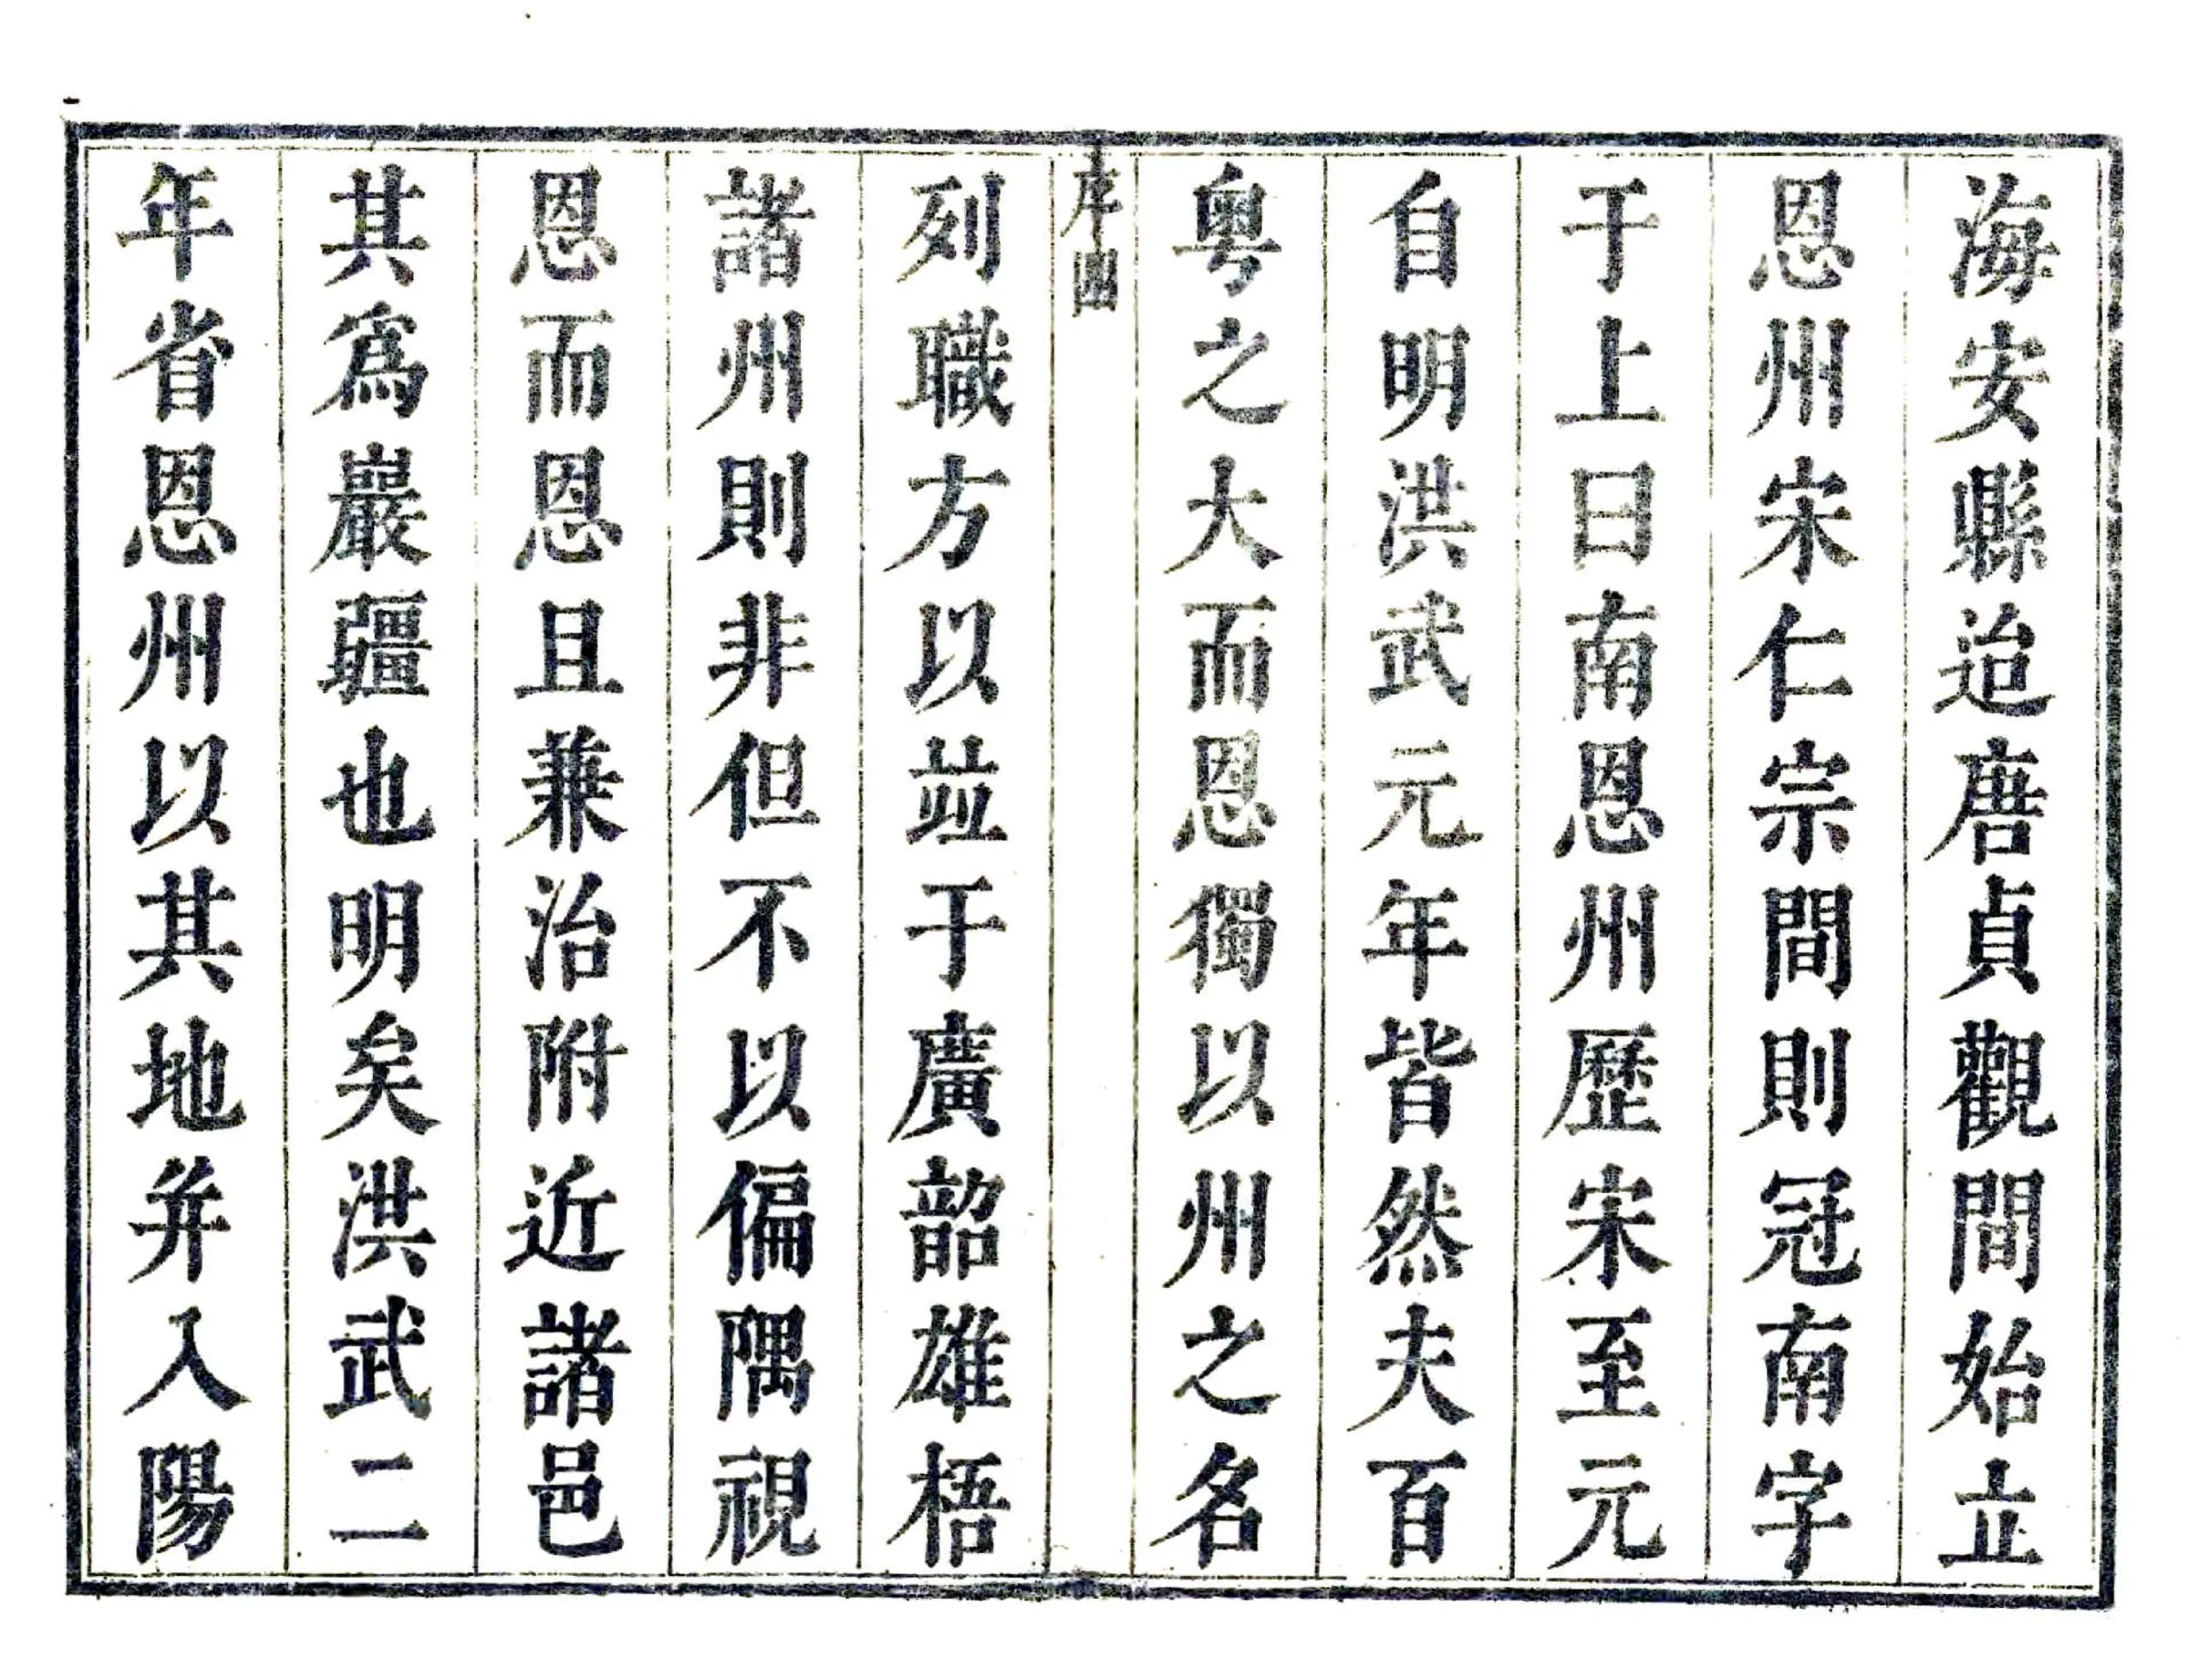 海安縣迨唐貞觀間始立
恩州宋仁宗間則冠南字
于上曰南恩州歷宋至元
自明洪武元年皆然夫百
粤之大而恩獨以州之名
序
列職方以並于廣韶雄梧
諸州則非但不以偏隅視
恩而恩且兼治附近諸邑
其爲巖疆也明矣洪武二
年省恩州以其地并入陽